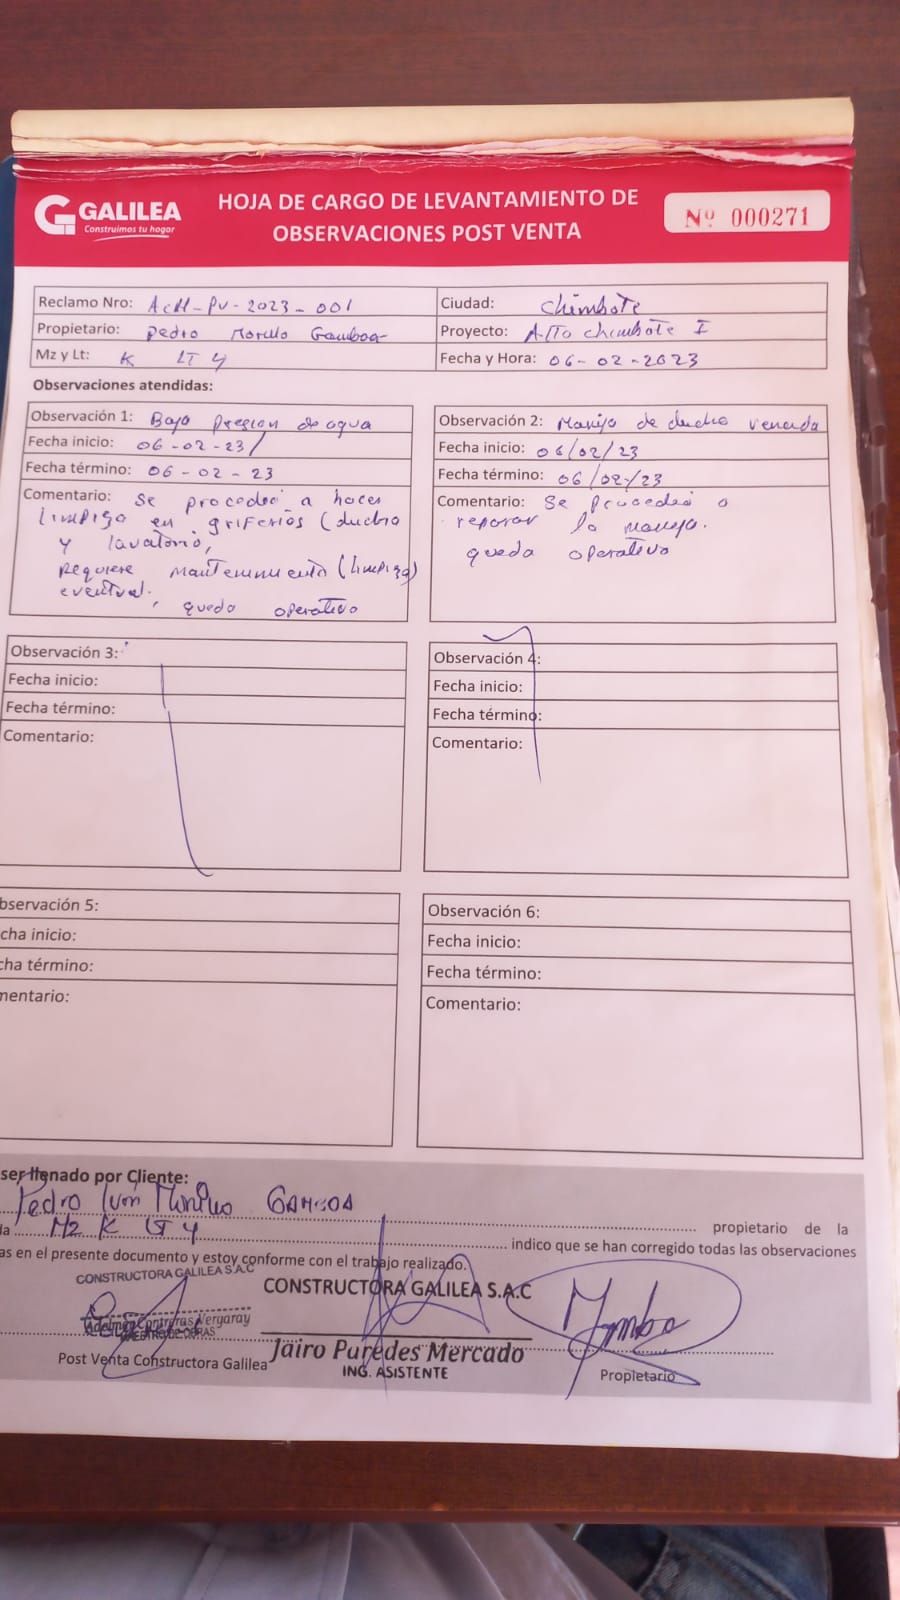 GALILEA
Construimos tu hogar
HOJA DE CARGO DE LEVANTAMIENTO DE
OBSERVACIONES POST VENTA
Nº 000271
Reclamo Nro: AcH-PV-2023-001
Ciudad: Chimbote
Propietario: Pedro Morillo Gamboa
Proyecto: Alto Chimbote I
Mz y Lt: K LT 4
Fecha y Hora: 06-02-2023
Observaciones atendidas:
Observación 1: Baja presion de agua
Fecha inicio: 06-02-23/
Fecha término: 06-02-23
Comentario: Se procedió a hacer
limpieza en griferias (ducha
y lavatorio,
Requiere mantenimiento (limpieza)
eventual, queda operativo
Observación 2: Manija de ducha vencida
Fecha inicio: 06/02/23
Fecha término: 06/02/23
Comentario: Se procedió a
reparar la manija.
queda operativo
Observación 3:
Fecha inicio:
Fecha término:
Comentario:
Observación 4:
Fecha inicio:
Fecha término:
Comentario:
bservación 5:
cha inicio:
cha término:
mentario:
Observación 6:
Fecha inicio:
Fecha término:
Comentario:
ser llenado por Cliente:
Pedro Morillo GAMBOA propietario de la
la Mz K LT 4 indico que se han corregido todas las observaciones
as en el presente documento y estoy conforme con el trabajo realizado.
CONSTRUCTORA GALILEA S.A.C
Contreras Vergaray
Post Venta Constructora Galilea
CONSTRUCTORA GALILEA S.A.C
Jairo Puredes Mercado
ING. ASISTENTE
Propietario